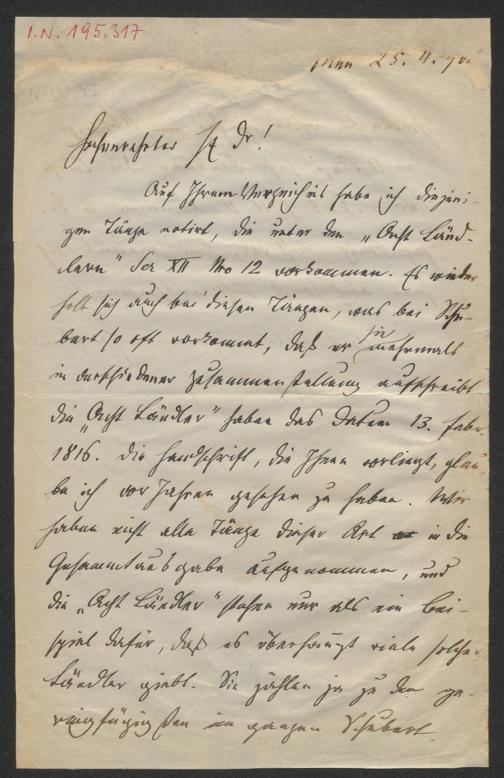 I.N. 195.317
Wien 25. 4. 90
Hochverehrter Hr Dr!
Auf Ihrem Verzeichnis habe ich diejeni-
gen Tänze notirt, die unter den „Acht Länd-
lern" Ser XII No 12 vorkommen. Es wieder
holt sich auch bei diesen Tänzen, was bei Schu-
bert so oft vorkommt, daß er sie mehrmals
in verschiedener Zusammenstellung aufschreibt
die „Acht Ländler" haben das Datum 13. Febr.
1816. Die Handschrift, die Ihnen vorliegt, glau-
be ich vor Jahren gesehen zu haben. Wir
haben nicht alle Tänze dieser Art in die
Gesammtausgabe aufgenommen, und
die „Acht Ländler" stehen nur als ein Bei-
spiel dafür, daß es überhaupt viele solcher
Ländler giebt. Sie zählen ja zu den ge-
ringfügigsten im ganzen Schubert.